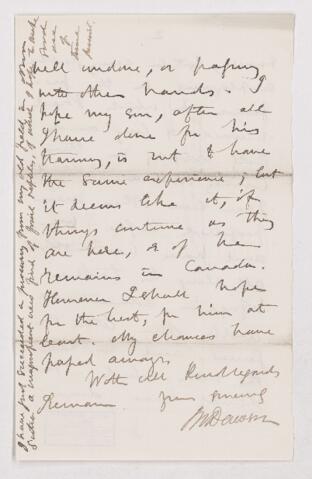 well undone, or passing
into other hands. I
hope my son, after all
I have done for his
training, is not to have
the same experience; but
it seems like it, if
things continue as they
are here, & if he
remains in Canada.
However I shall hope
for the best, for him at
least. My chances have
passed away.
With all kind regards
I remain yours sincerely
JWDawson
I have just succeeded in procuring from my old field, in
quite a magnificent new find of fossil reptiles, of which I hope to make
good
use
of
time